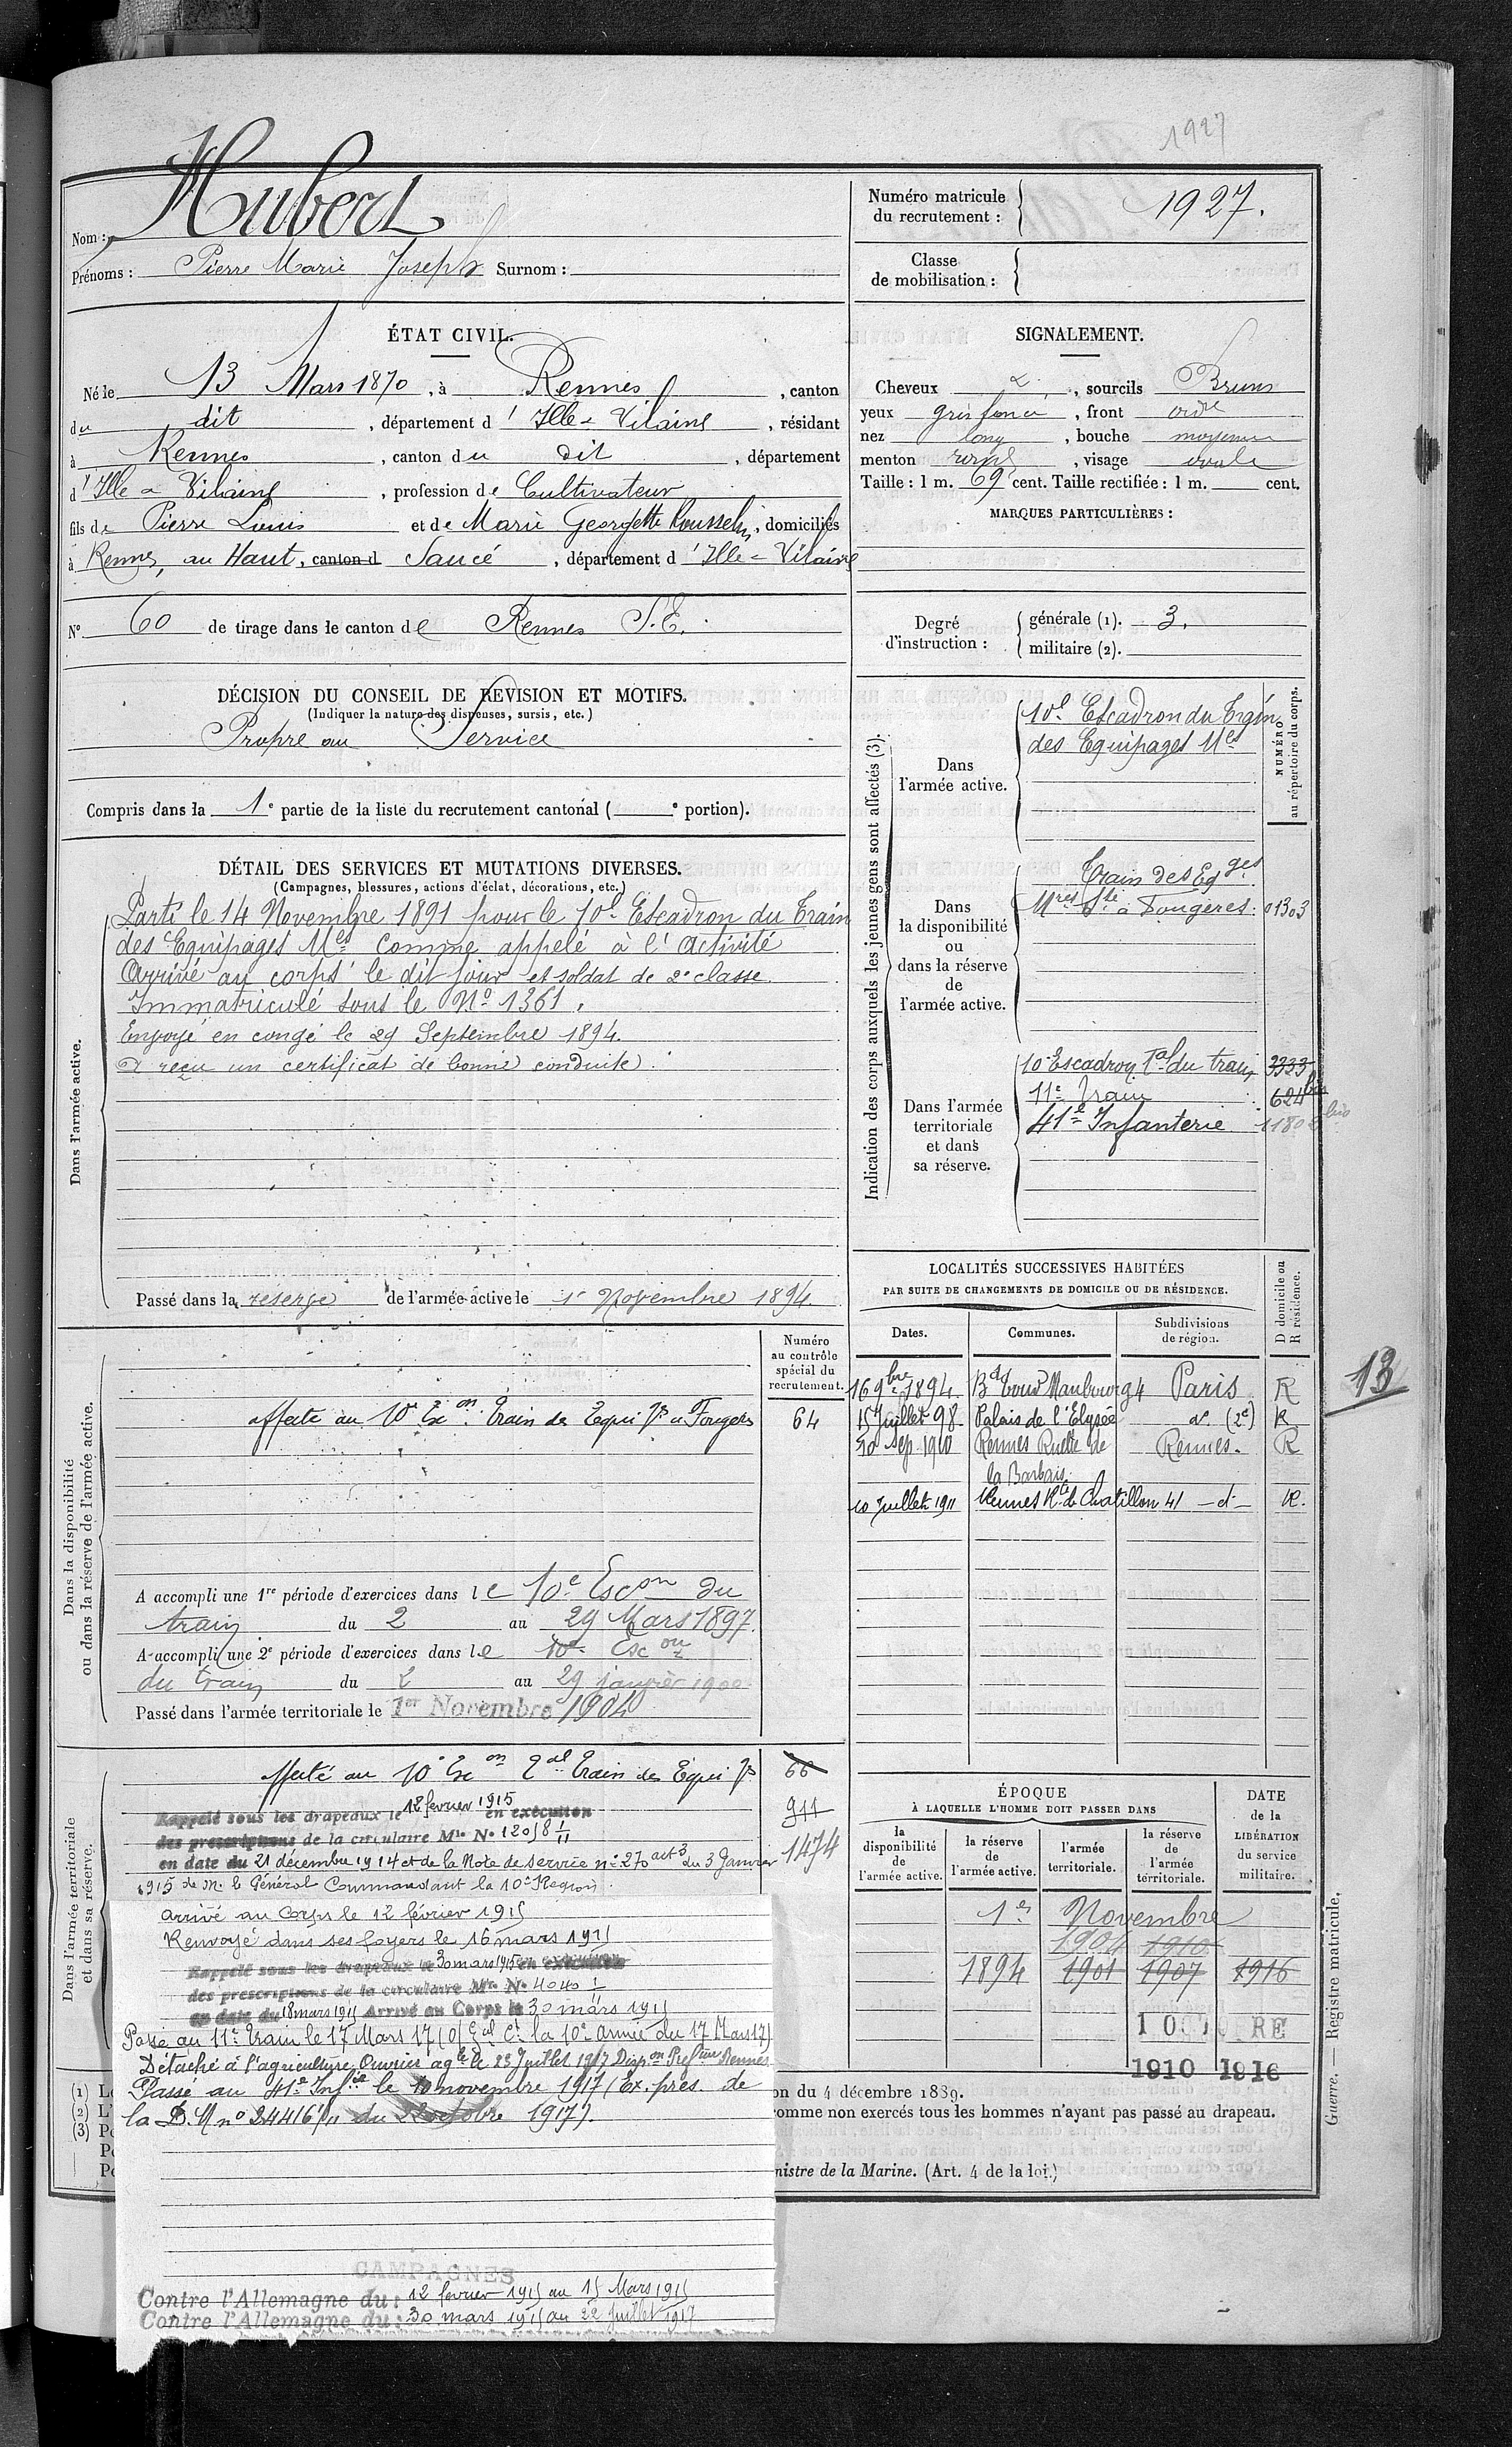 1927
Nom : Hubert
Prénoms : Pierre Marie Joseph Surnom :
Numéro matricule du recrutement : 1927.
Classe de mobilisation :
ÉTAT CIVIL.
Né le 13 Mars 1870, à Rennes, canton
du dit, département d'Ille-&-Vilaine, résidant
à Rennes, canton du dit, département
d'Ille & Vilaine, profession de Cultivateur
fils de Pierre Louis et de Marie Georgette Rousselin, domiciliés
à Rennes, au Haut, canton d Sancé, département d'Ille-&-Vilaine
No 60 de tirage dans le canton de Rennes S.E.
SIGNALEMENT.
Cheveux &, sourcils Bruns
yeux gris foncé, front ordre
nez long, bouche moyenne
menton rond, visage ovale
Taille : 1 m. 69 cent. Taille rectifiée : 1 m. cent.
MARQUES PARTICULIÈRES :
Degré d'instruction : générale (1). 3.
militaire (2).
DÉCISION DU CONSEIL DE REVISION ET MOTIFS.
(Indiquer la nature des dispenses, sursis, etc.)
Propre au Service
Compris dans la 1e partie de la liste du recrutement cantonal ( e portion).
DÉTAIL DES SERVICES ET MUTATIONS DIVERSES.
(Campagnes, blessures, actions d'éclat, décorations, etc.)
Dans l'armée active.
Parti le 14 Novembre 1891 pour le 10e Escadron du Train
des Equipages Mes comme appelé à l'activité
Arrivé au corps le dit jour et soldat de 2e classe.
Immatriculé sous le No 1361.
Envoyé en congé le 29 Septembre 1894.
A reçu un certificat de bonne conduite.
Passé dans la réserve de l'armée active le 1er Novembre 1894.
Indication des corps auxquels les jeunes gens sont affectés (3).
NUMÉRO au répertoire du corps.
Dans l'armée active.
10e Escadron du Train
des Equipages Mes
Dans la disponibilité ou dans la réserve de l'armée active.
Train des Eqges
Mres à Fougères. 01303
Dans l'armée territoriale et dans sa réserve.
10e Escadron Tal du train 3333
11e Train 624 bis
41e Infanterie 1180 bis
LOCALITÉS SUCCESSIVES HABITÉES
PAR SUITE DE CHANGEMENTS DE DOMICILE OU DE RÉSIDENCE.
Dates. Communes. Subdivisions de région. D domicile ou R résidence.
16 9bre 1894. Bd Tour Maubourg 4 Paris R
15 Juillet 98 Palais de l'Elysée do (2e) R
30 Sep 1910 Rennes Ruelle de la Barbais Rennes. R
10 Juillet 1911 Rennes Rte de Chatillon 41 - d - R.
13
Dans la disponibilité ou dans la réserve de l'armée active.
Numéro au contrôle spécial du recrutement.
affecté au 10e Exon Train des Equipges à Fougères 64
A accompli une 1re période d'exercices dans le 10e Escon du
train du 2 au 29 Mars 1897.
A accompli une 2e période d'exercices dans le 10e Escon
du train du 2 au 29 janvier 1900
Passé dans l'armée territoriale le 1er Novembre 1904
Dans l'armée territoriale et dans sa réserve.
affecté au 10e Exon Tal Train des Equipges 66
911
1474
Rappelé sous les drapeaux le 12 février 1915 en exécution
des prescriptions de la circulaire Mle No 12058 1/11
en date du 21 décembre 1914 et de la Note de service no 270 act 3 du 3 Janvier
1915 de M. le Général Commandant la 10e Région
arrivé au Corps le 12 février 1915
Renvoyé dans ses foyers le 16 mars 1915
Rappelé sous les drapeaux le 30 mars 1915 en exécution
des prescriptions de la circulaire Mle No 4040 1/11
en date du 18 mars 1915 Arrivé au Corps le 30 mars 1915
Passé au 11e Train le 17 Mars 17 (O/ Gal Ct la 10e Armée du 17 Mars 17)
Détaché à l'agriculture Ouvrier agle le 23 Juillet 1917 Dispon Rennes
Passé au 41e Infie le 10 novembre 1917 (Ex. pres. de
la D. M no 24416 1/11 du 22 octobre 1917).
CAMPAGNES
Contre l'Allemagne du : 12 février 1915 au 15 Mars 1915
Contre l'Allemagne du : 30 mars 1915 au 22 Juillet 1917
ÉPOQUE
À LAQUELLE L'HOMME DOIT PASSER DANS
la disponibilité de l'armée active. la réserve de l'armée active. l'armée territoriale. la réserve de l'armée territoriale. DATE de la LIBÉRATION du service militaire.
1er Novembre
1904 1910
1894 1901 1907 1916
1 OCTOBRE
1910 1916
(1) L
(2) L'
(3) P
on du 4 décembre 1889.
comme non exercés tous les hommes n'ayant pas passé au drapeau.
nistre de la Marine. (Art. 4 de la loi.)
Guerre. — Registre matricule.